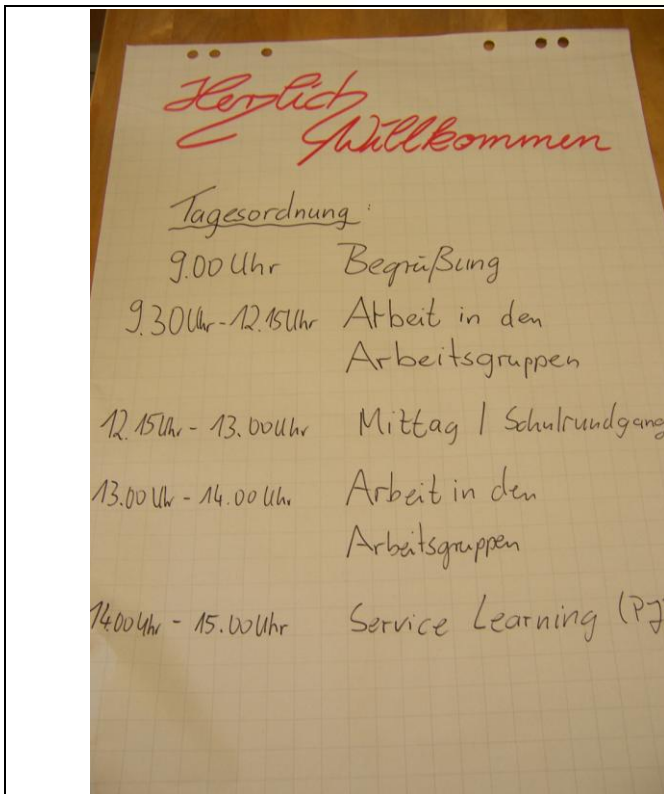 Herzlich
Willkommen
Tagesordnung:
9.00 Uhr Begrüßung
9.30 Uhr - 12.15 Uhr Arbeit in den
Arbeitsgruppen
12.15 Uhr - 13.00 Uhr Mittag / Schulrundgang
13.00 Uhr - 14.00 Uhr Arbeit in den
Arbeitsgruppen
14.00 Uhr - 15.00 Uhr Service Learning